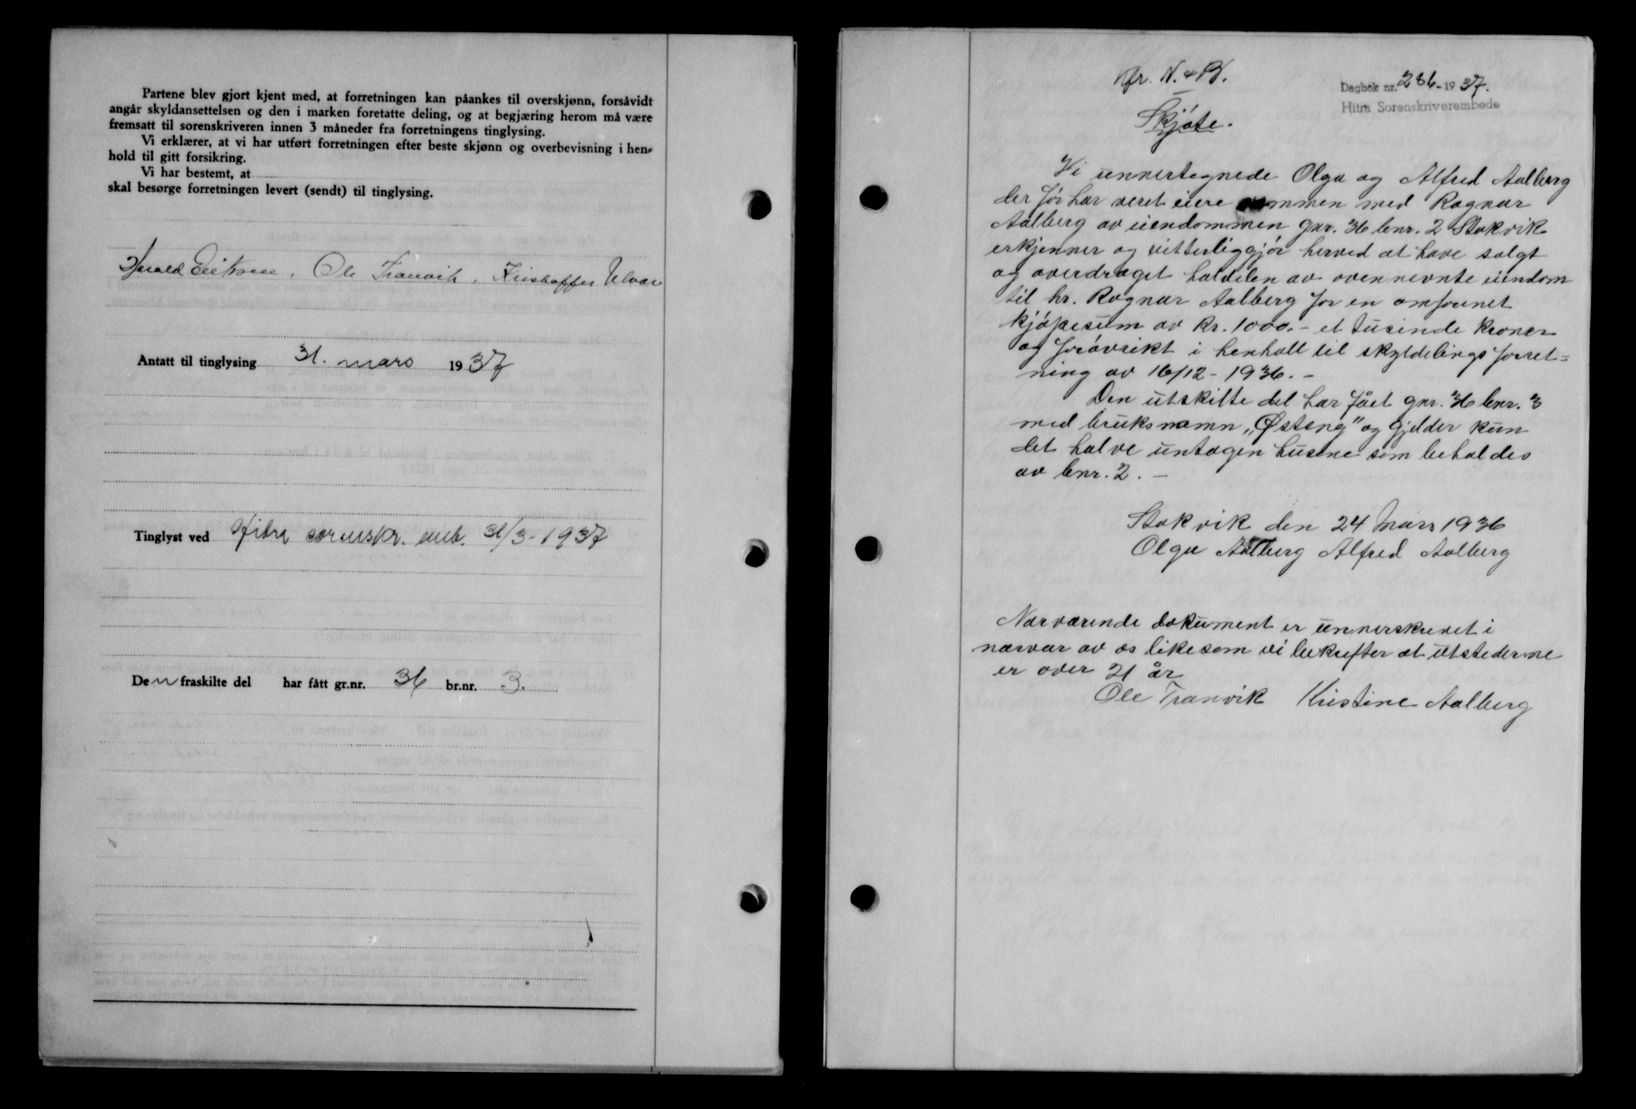 Partene blev gjort kjent med, at forretningen kan påankes til overskjønn, forsåvidt
angår skyldansettelsen og den i marken foretatte deling, og at begjæring herom må være
fremsatt til sorenskriveren innen 3 måneder fra forretningens tinglysing.
Vi erklærer, at vi har utført forretningen efter beste skjønn og overbevisning i hen-
hold til gitt forsikring.
Vi har bestemt, at
skal besørge forretningen levert (sendt) til tinglysing.
Harald Eriksen. Ole Tranvik, Kristoffer Ulvan
Antatt til tinglysing 31. mars 1937
Tinglyst ved Hitra sorenskr. emb. 31/3-1937
Den fraskilte del har fått gr.nr. 36 br.nr. 3.
Dagbok nr. 286-1937.
Hitra Sorenskriverembede
Skjøte.
Vi unnertegnede Olga og Alfred Aalberg
der før har veret eiere sammen med Ragnar
Aalberg av eiendommen gnr. 36 bnr. 2 Stokvik
erkjenner og vitterliggjør herved at have solgt
og overdraget haldelen av ovennevnte eiendom
til hr. Ragnar Aalberg for en omforenet
kjøpesum av Kr. 1000.- et tusinde kroner
og forøvrikt i henholl til skyldelings forret=
ning av 16/12-1936.-
Den utskilte del har fået gnr. 36 bnr. 3
med bruksnamn „Østeng" og gjelder kun
det halve untagen husene som beholdes
av bnr. 2. -
Stokvik den 24 Mars 1936
Olga Aalberg Alfred Aalberg
Nærværende dokument er unnerskrevet i
nærvær av os likesom vi bekrefter at utstederne
er over 21 år
Ole Tranvik Kristine Aalberg